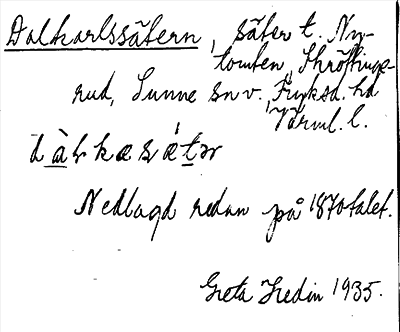 Dalkarlssätern, säter t. Ny-
tomten, Skröftinge-
rud, Sunne sn v., Fryksd. hd
Värml. l.
dàɫkasǽtər
Nedlagd redan på 1870talet.
Greta Hedin 1935.